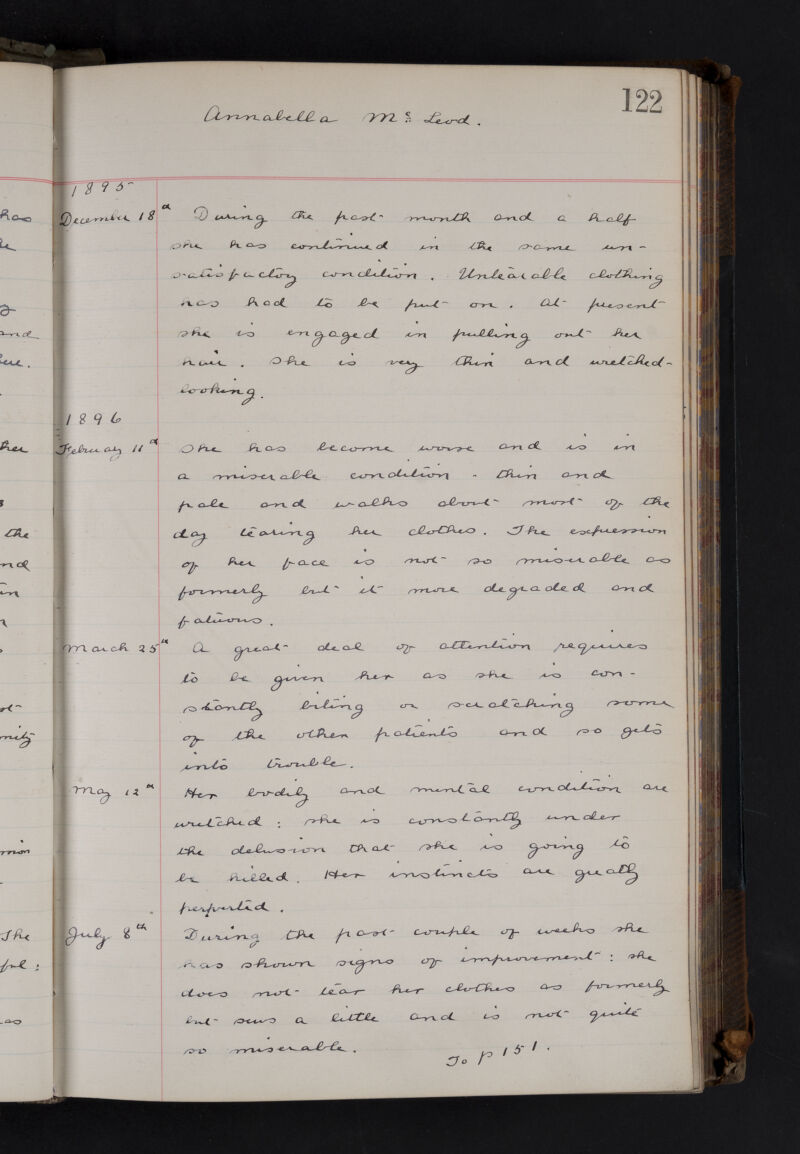 122
Annabella McLeod.
1895
December 18th During the past month and a half
she has continued in the same un-
satisfactory condition. Untearable clothing
has had to be put on. At present
she is engaged in pulling out her
hair. She is very thin and wretched-
looking.
1896
February 11th She has become worse and is in
a miserable condition - thin and
pale and walks about most of the
day tearing her clothes. The expression
of her face is not so miserable as
formerly but it more degraded and
fatuous.
March 25th A great deal of attention requires
to be given her as she is con-
stantly biting or scratching some
of the other patients and so gets
into trouble.
May 12th Her bodily and mental condition are
wretched: she is constantly under
the delusion that she is going to
be killed. Her instincts are greatly
perperted.
July 8th During the past couple of weeks she
has shown signs of improvement: she
does not tear her clothes as formerly
but sews a little and is not quite
so miserable.
To p 151.